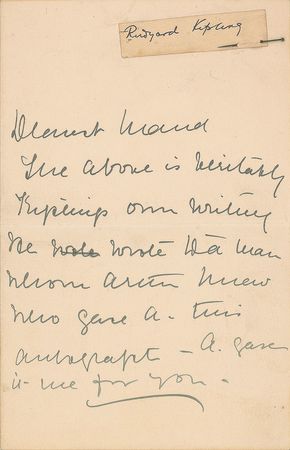 Rudyard Kipling
Dearest Maud
The above is veritably
Kiplings own writing
he wrote to a man
whom Artur knew
who gave A. this
autograph – A. gave
it me for you –